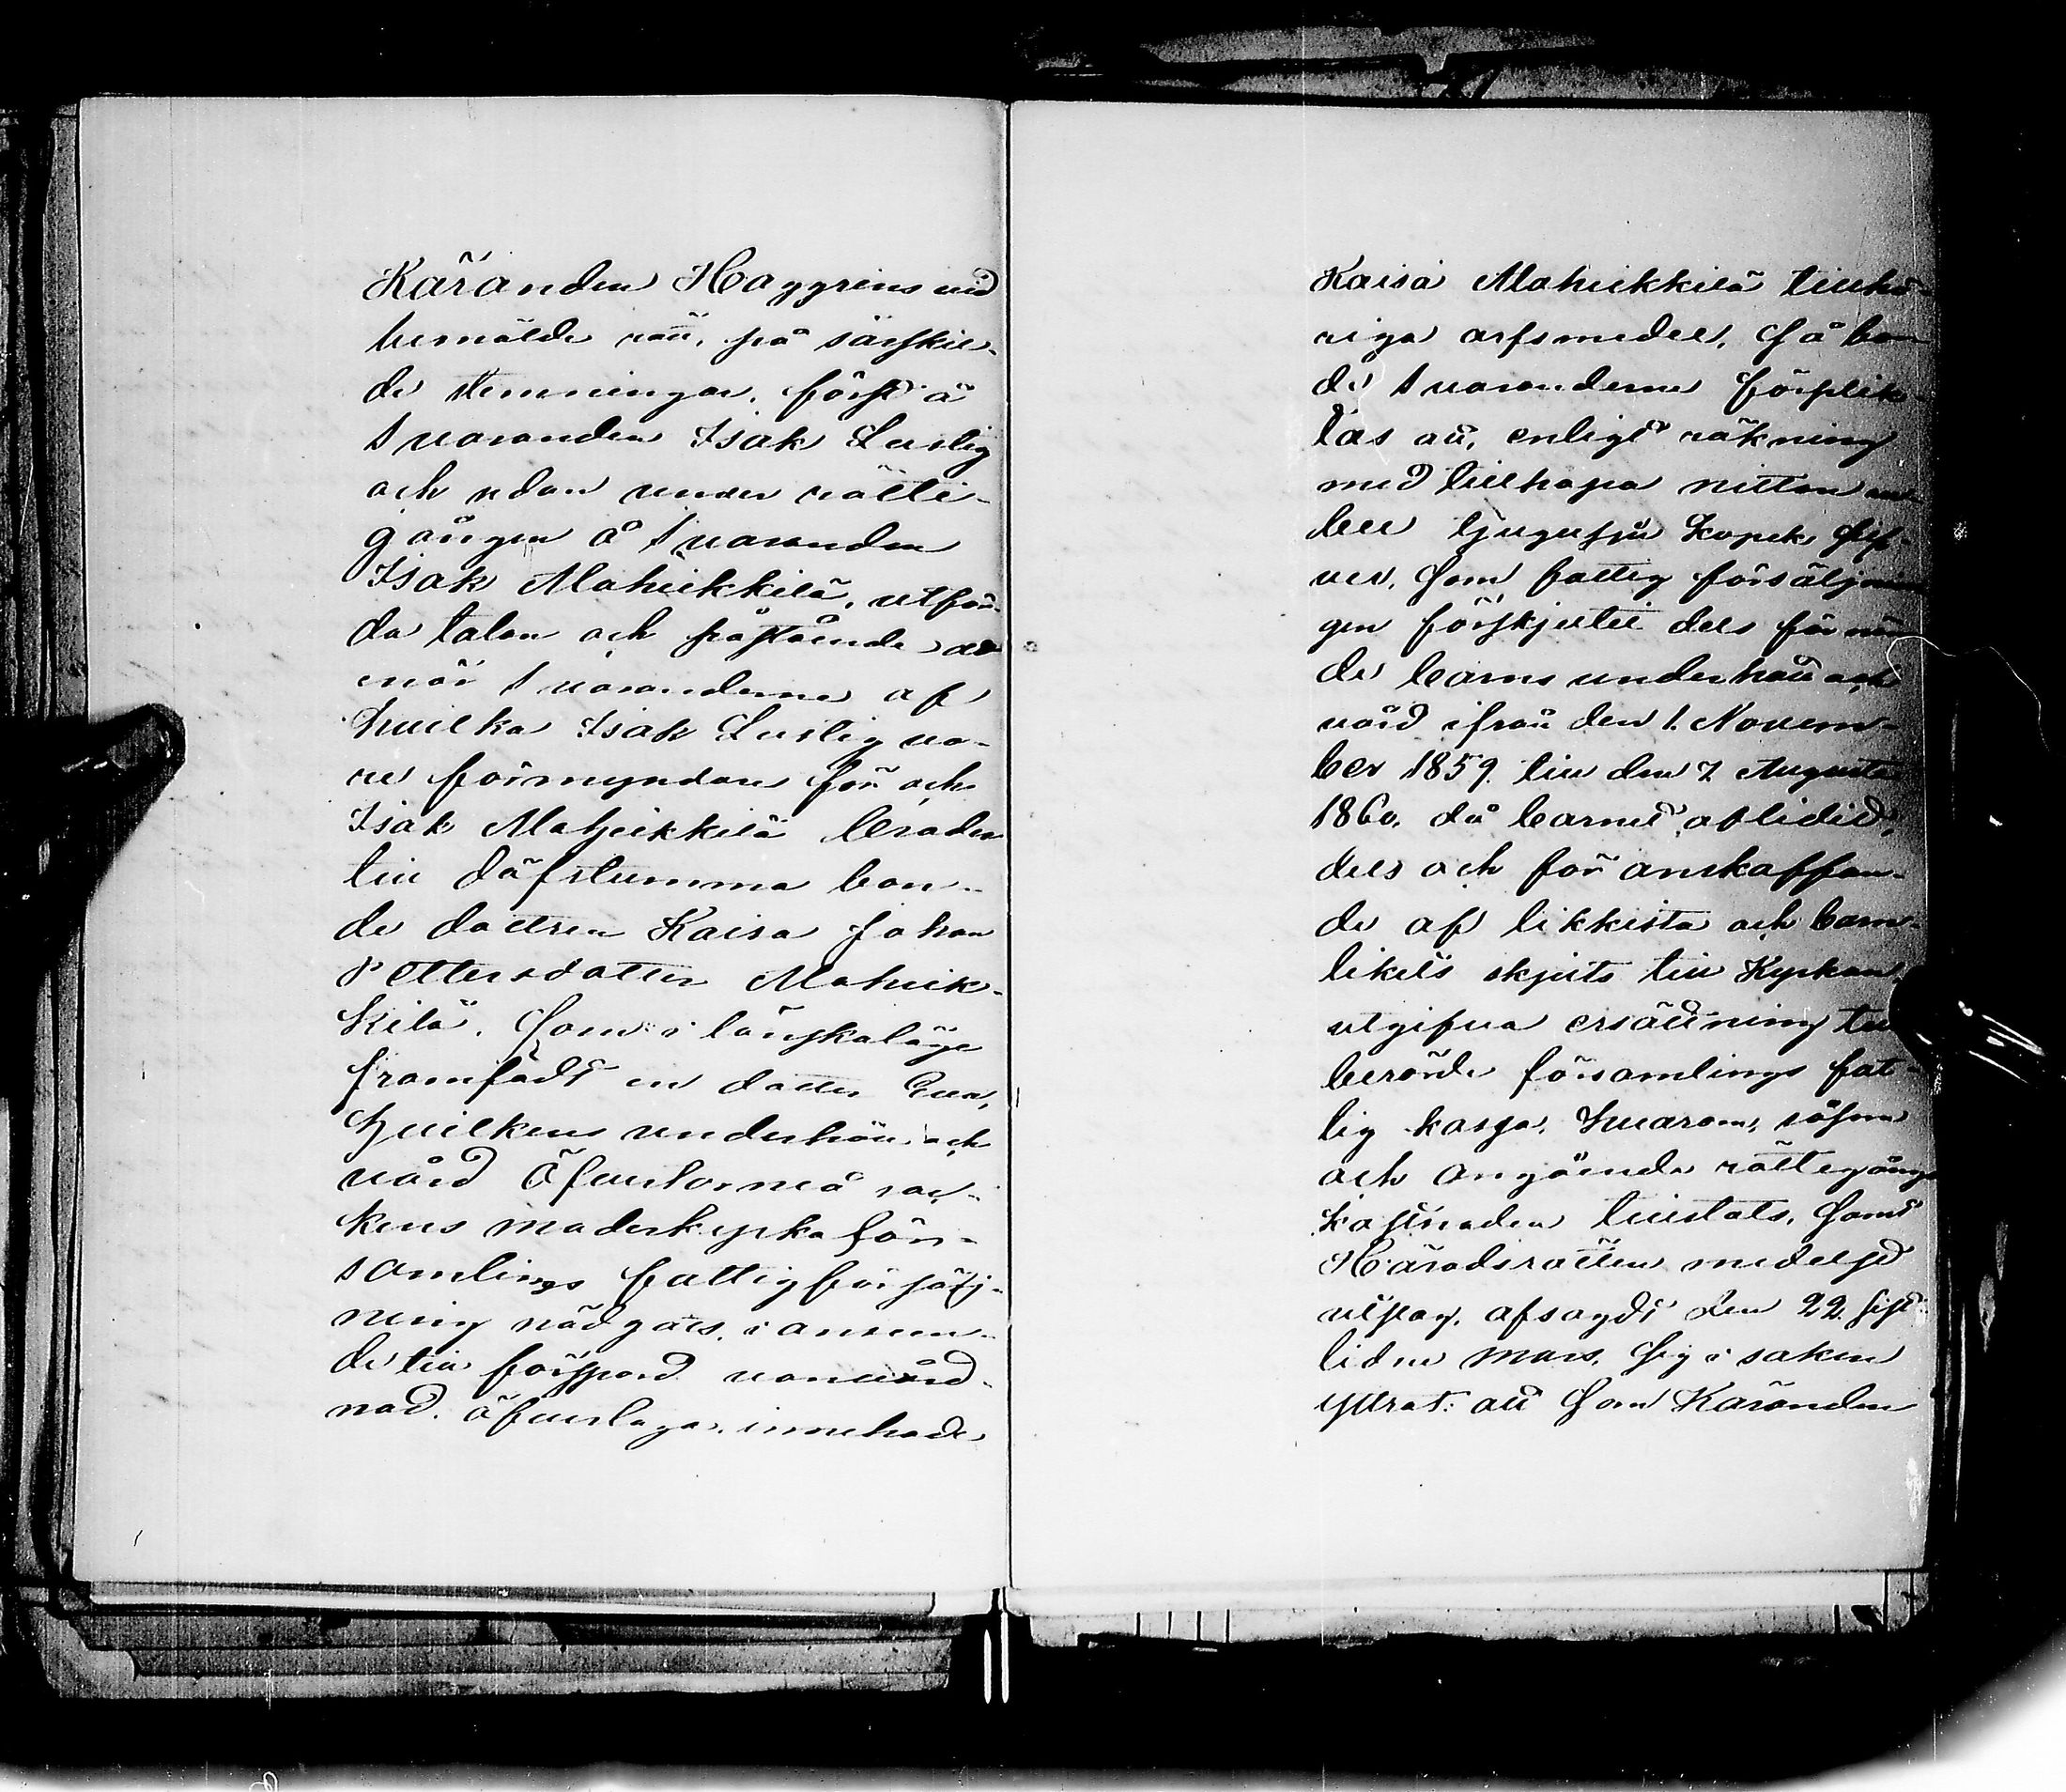 Käranden Haggrens vid
bemälde rätt, på särskil-
de stemningar, först å
Svaranden Isak Lustig
och sedan under rätte-
gången å Svaranden
Isak Mahiekkilä, utför-
da talan och påstående
när Svaranderne af
hvilka Isak Lustig va-
re förmyndare för och
Isak Mahiekkilä broder
till döfstumma bon-
de dottren Kaisa Johan
Pettersdotter Mahiek-
kilä, som i lönskaläge
framfödt en dotter Eva,
hvilkens underhåll och
vård Öfvertorneå soc-
kens moderkyrka för-
samlings fattigförsörj-
ning nödgats, i anseen-
de till förspord vanvård-
nad, öfvertaga, innehade
Kaisa Mahiekkilä tillhö-
riga arfsmedel, så bor-
de Svaranderne förplik-
tas att, enligt räkning
med tillhopa nitton ru-
bel tjugusju kopek silf-
ver, som fattig försörjnin
gen förskjutit dels för nü
de barns underhåll och
vård ifrån den 1. Novem-
ber 1859. till den 7 Augusti
1860. då barnet aflidit,
dels och för anskaffan-
de af likkista och barn-
likets skjuts till Kyrkan,
utgifva ersättning till
berörde församlings fat-
tig kassa, hvarom, såsom
och angående rättegångs
kostnaden tvistats, samt
Häradsrätten medelst
utslag, afsagdt den 22. sist-
lidne Mars, sig i saken
yttrat: att som Käranden